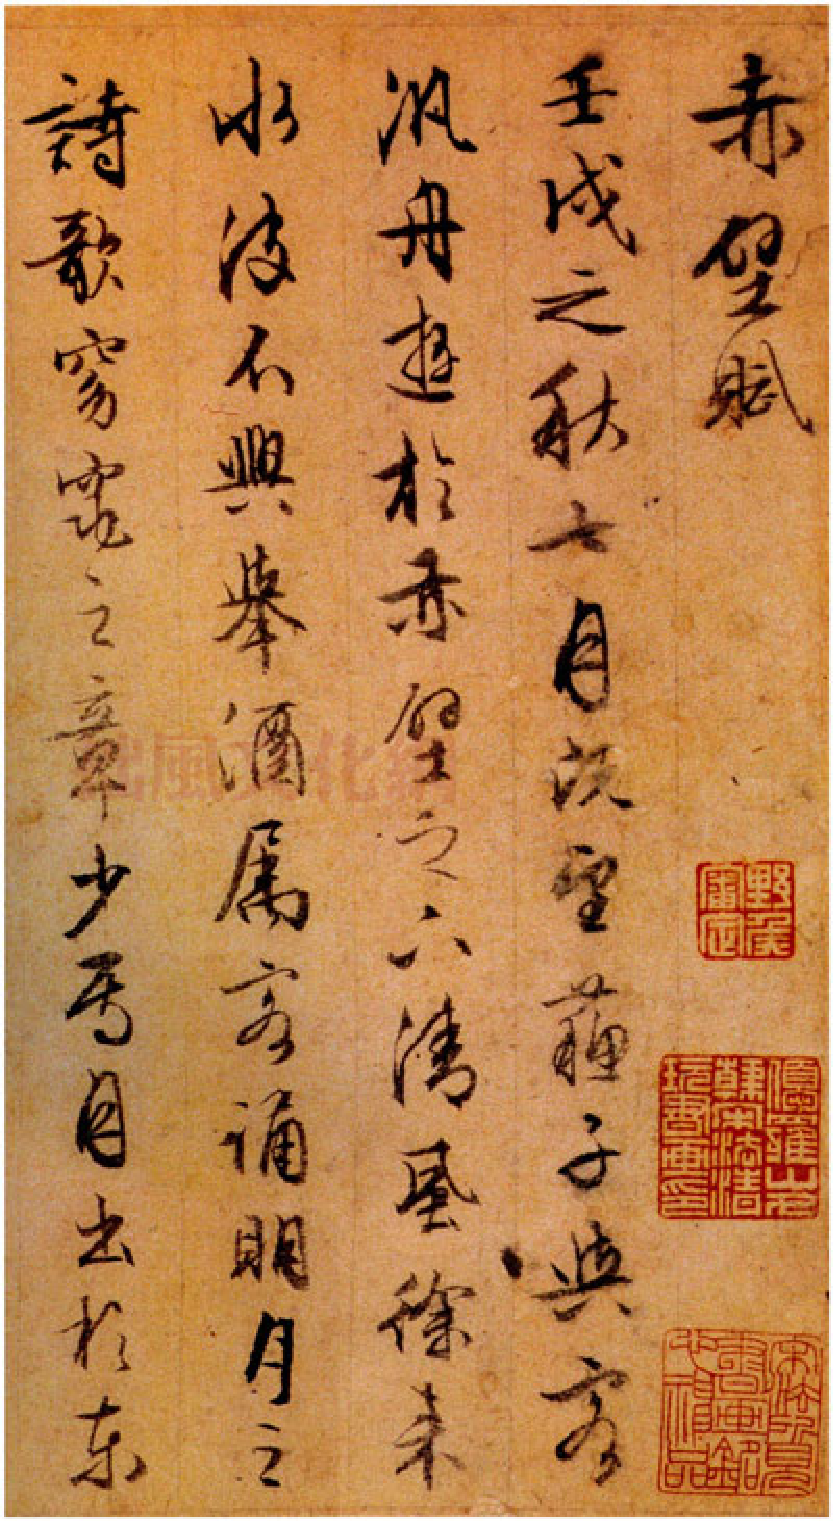 赤壁賦
壬戌之秋七月既望蘓子與客
汎舟遊於赤壁之下清風徐来
水波不興舉酒属客誦明月之
詩歌窈窕之章少焉月出於東
野侯審定